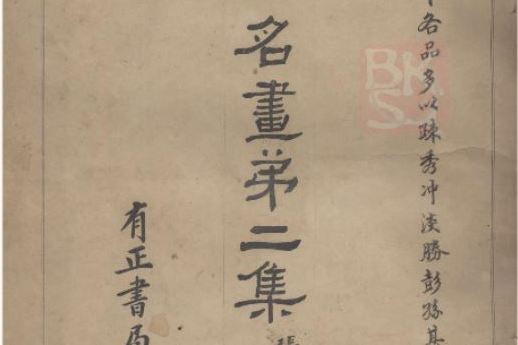 各品多以疎秀冲淡勝彭孫其
名畫第二集
張
有正書局
BKS